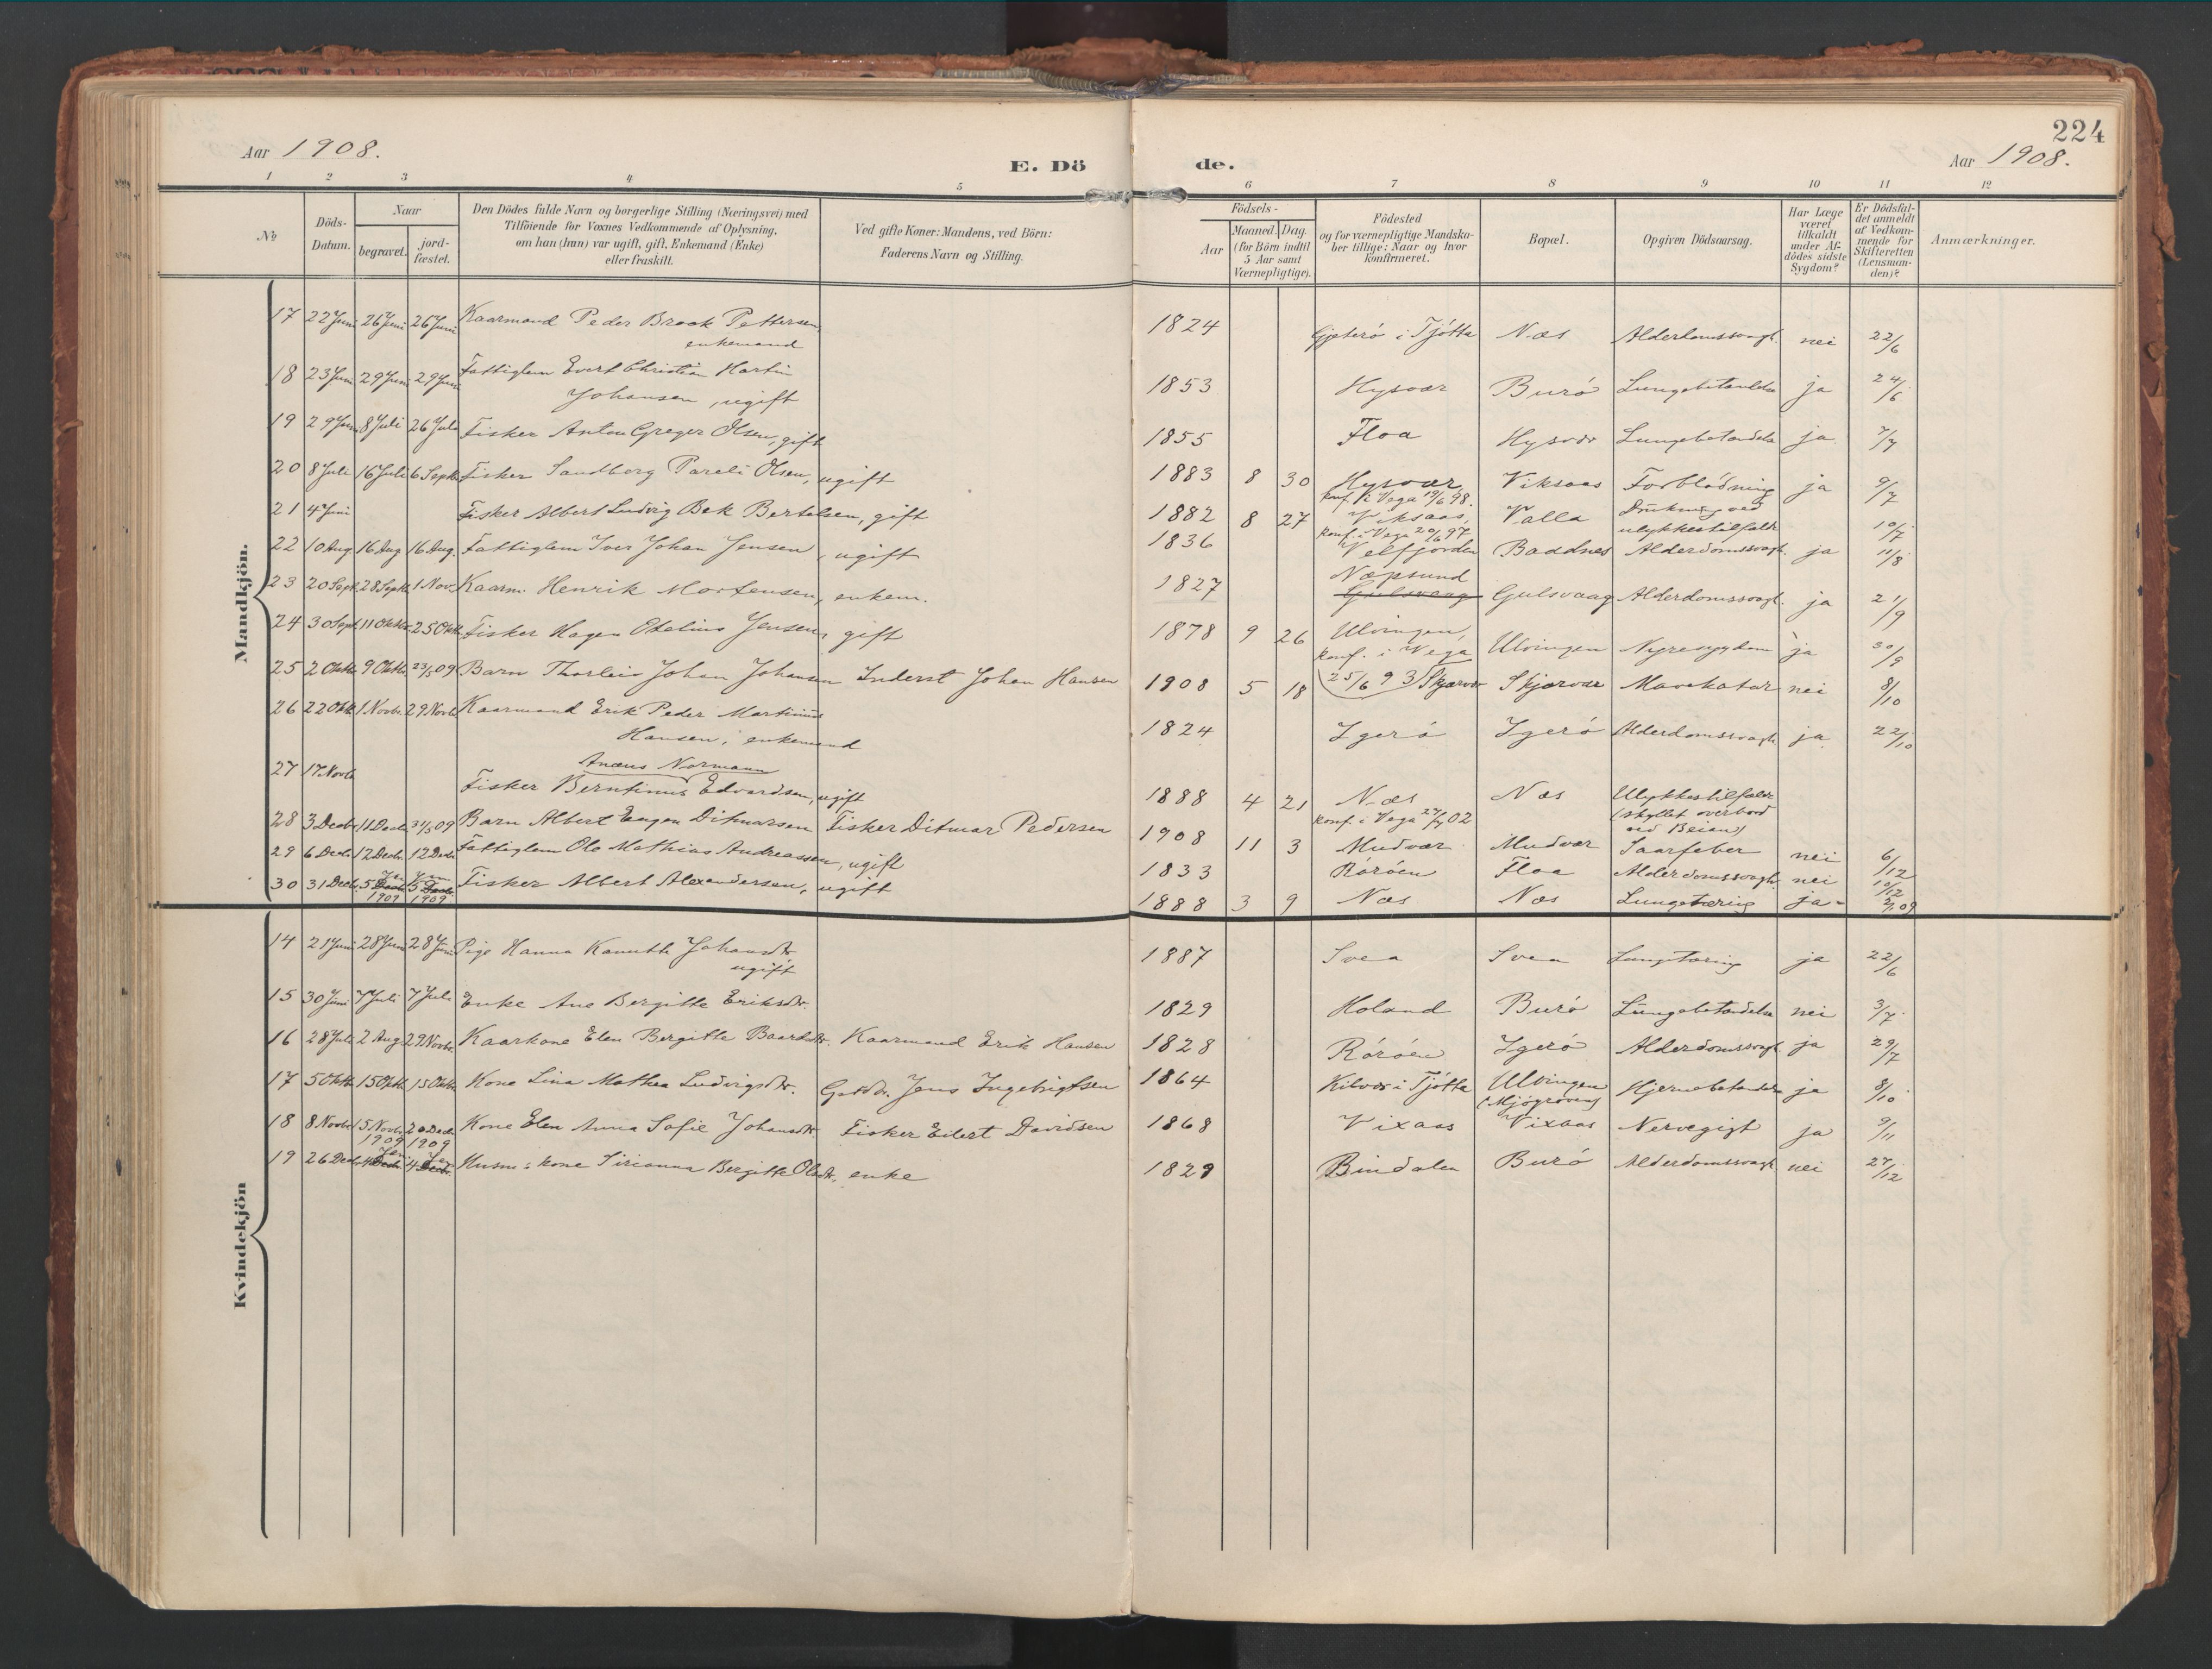 224
Aar 1908.
E. Dö de.
Aar 1908.
1 2 3 4 5 6 7 8 9 10 11 12
No
Döds-Datum.
Naar
begravet.
jord-fæstet.
Den Dödes fulde Navn og borgerlige Stilling (Næringsvei) med
Tilföiende for Voxnes Vedkommende af Oplysning,
om han (hun) var ugift, gift, Enkemand (Enke)
eller fraskilt.
Ved gifte Koner: Mandens, ved Börn:
Faderens Navn og Stilling.
Födsels-
Aar
Maaned. Dag.
(for Börn indtil
5 Aar samt
Værnepligtige).
Födested
og for værnepligtige Mandska-
ber tillige: Naar og hvor
konfirmeret.
Bopæl.
Opgiven Dödsaarsag.
Har Læge
været
tilkaldt
under Af-
dödes sidste
Sygdom?
Er Dödsfal-
det anmeldt
af Vedkom-
mende for
Skifteretten
(Lensman-
den)?
Anmærkninger.
Mandkjön.
17 22 Juni 26 Juni 26 Juni Kaarmand Peder Brook Pettersen enkemand 1824 Gjeterö i Tjötta Næs Alderdomssvagh. nei 22/6
18 23 Juni 29 Juni 29 Juni Fattiglem Evert Christian Martin
Johansen, ugift 1853 Hysvær Burö Lungebetændelse ja 24/6
19 29 Juni 8 Juli 26 Juli Fisker Anton Greger Olsen, gift 1855 Floa Hysvær Lungebetændelse ja 7/7
20 8 Juli 16 Juli 6 Septb Fisker Sandberg Pareli Olsen, ugift 1883 8 30 Hysvær konf. i Vega 19/6 98. Viksaas Forblödning ja 9/7
21 4 Juni Fisker Albert Ludvig Bek Bertelsen, gift 1882 8 27 Viksaas, konf. i Vega 20/6 97 Valla Drukning ved ulykkestilfælde 10/7
22 10 Aug 16 Aug 16 Aug. Fattiglem Iver Johan Jensen, ugift 1836 Velfjorden Baddnes Alderdomssvagh. ja 11/8
23 20 Septb 28 Septb 1 Nov. Kaarm. Henrik Mortensen, enkem. 1827 Næpsund Gulsvaag Gulsvaag Alderdomssvagh. ja 21/9
24 30 Sept 11 Oktb. 25 Oktb. Fisker Hagen Otelius Jensen, gift 1878 9 26 Ulvingen, konf. i Vega 25/6 93 Ulvingen Nyresygdom ja 30/9
25 2 Oktb 9 Oktb 23/5 09 Barn Thorleiv Johan Johansen Inderst Johan Hansen 1908 5 18 Skjærvær Skjærvær Mavekatar nei 8/10
26 22 Oktb 1 Novbr. 29 Novb Kaarmand Erik Peder Martinus
Hansen, enkemand 1824 Igerö Igerö Alderdomssvagh ja 22/10
27 17 Novb Anæus Normann
Fisker Berntinus Edvardsen, ugift 1888 4 21 Næs konf. i Vega 27/7 02 Næs Ulykkestilfælde (skyllet overbord ved Beian)
28 3 Decbr 11 Decb 31/5 09 Barn Albert Eugen Ditmarsen Fisker Ditmar Pedersen 1908 11 3 Mudvær Mudvær Saarfeber nei 6/12
29 6 Decb. 12 Decb. 12 Decb. Fattiglem Ole Mathias Andreassen, ugift 1833 Röröen Floa Alderdomssvagh nei 10/12
30 31 Decb. 5 Decb Jan 1909 5 Decb Jan 1909 Fisker Albert Alexandersen, ugift 1888 3 9 Næs Næs Lungetæring ja 2/1 09
Kvindekjön
14 21 Juni 28 Juni 28 Juni Pige Hanna Kanutte Johansdtr.
ugift 1887 Svea Svea Lungetæring ja 22/6
15 30 Juni 7 Juli 7 Juli Enke Ane Bergitte Eriksdtr. 1829 Holand Burö Lungebetændelse nei 3/7
16 28 Juli 2 Aug 29 Novbr. Kaarkone Elen Bergitte Baardsdtr. Kaarmand Erik Hansen 1828 Röröen Igerö Alderdomssvagh ja 29/7
17 5 Oktb 15 Oktb 15 Oktb Kone Lina Mathea Ludvigsdtr. Gaardbr. Jens Ingebrigtsen 1864 Kilvær i Tjötta Ulvingen (Mjögröven) Hjernebetændelse ja 8/10
18 8 Novbr. 15 Novbr. 20 Decbr. Kone Elen Anna Sofie Johansdtr. Fisker Edert Davidsen 1868 Vixaas Vixaas Nervegigt ja 9/11
19 26 Decb. 4 Decb. Jan 1909 4 Decbr. Jan 1909 Husm: kone Sirianna Bergitte Olsdtr., enke 1829 Bindalen Burö Alderdomssvagh nei 27/12